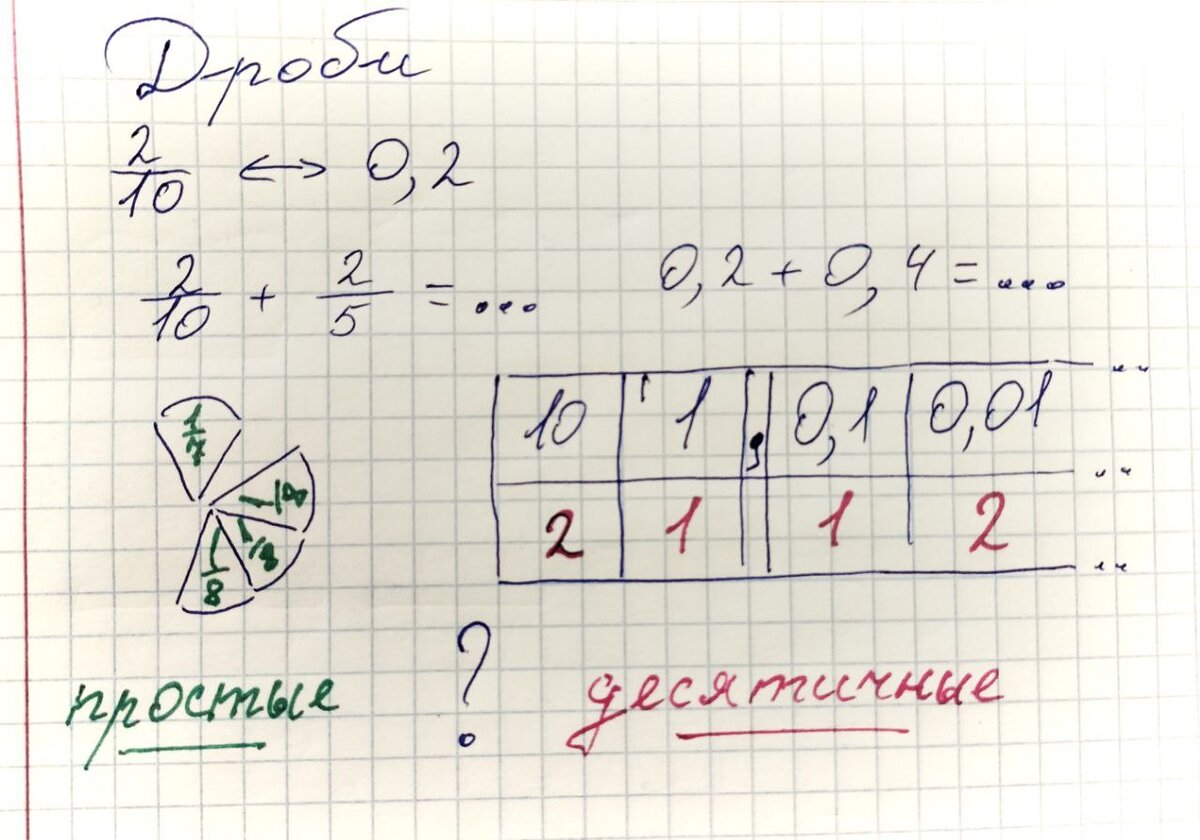 Дроби
2/10 ↔ 0,2
2/10 + 2/5 = ... 0,2 + 0,4 = ...
10 1 , 0,1 0,01 ..
2 1 1 2 ..
1/7
1/8
1/8
1/8
простые ? десятичные